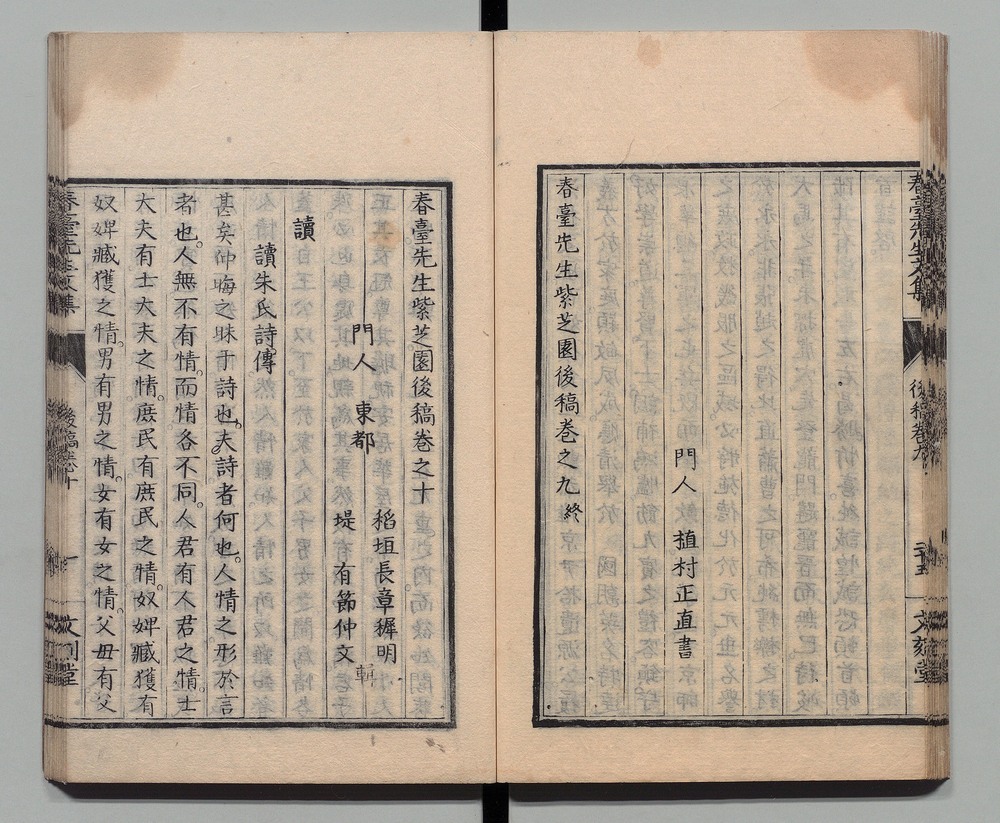 春臺先生文集
後稿卷九
三十五
文刻堂
門人 植村正直書
春臺先生紫芝園後稿卷之九終
春臺先生紫芝園後稿卷之十
稻垣長章穉明
門人 東都
堤有節仲文 輯
讀
讀朱氏詩傳
甚矣仲晦之昧于詩也。夫詩者何也。人情之形於言
者也。人無不有情。而情各不同。人君有人君之情。士
大夫有士大夫之情。庶民有庶民之情。奴婢臧獲有
奴婢臧獲之情。男有男之情。女有女之情。父母有父
春臺先生文集
後稿卷十
一
文刻堂